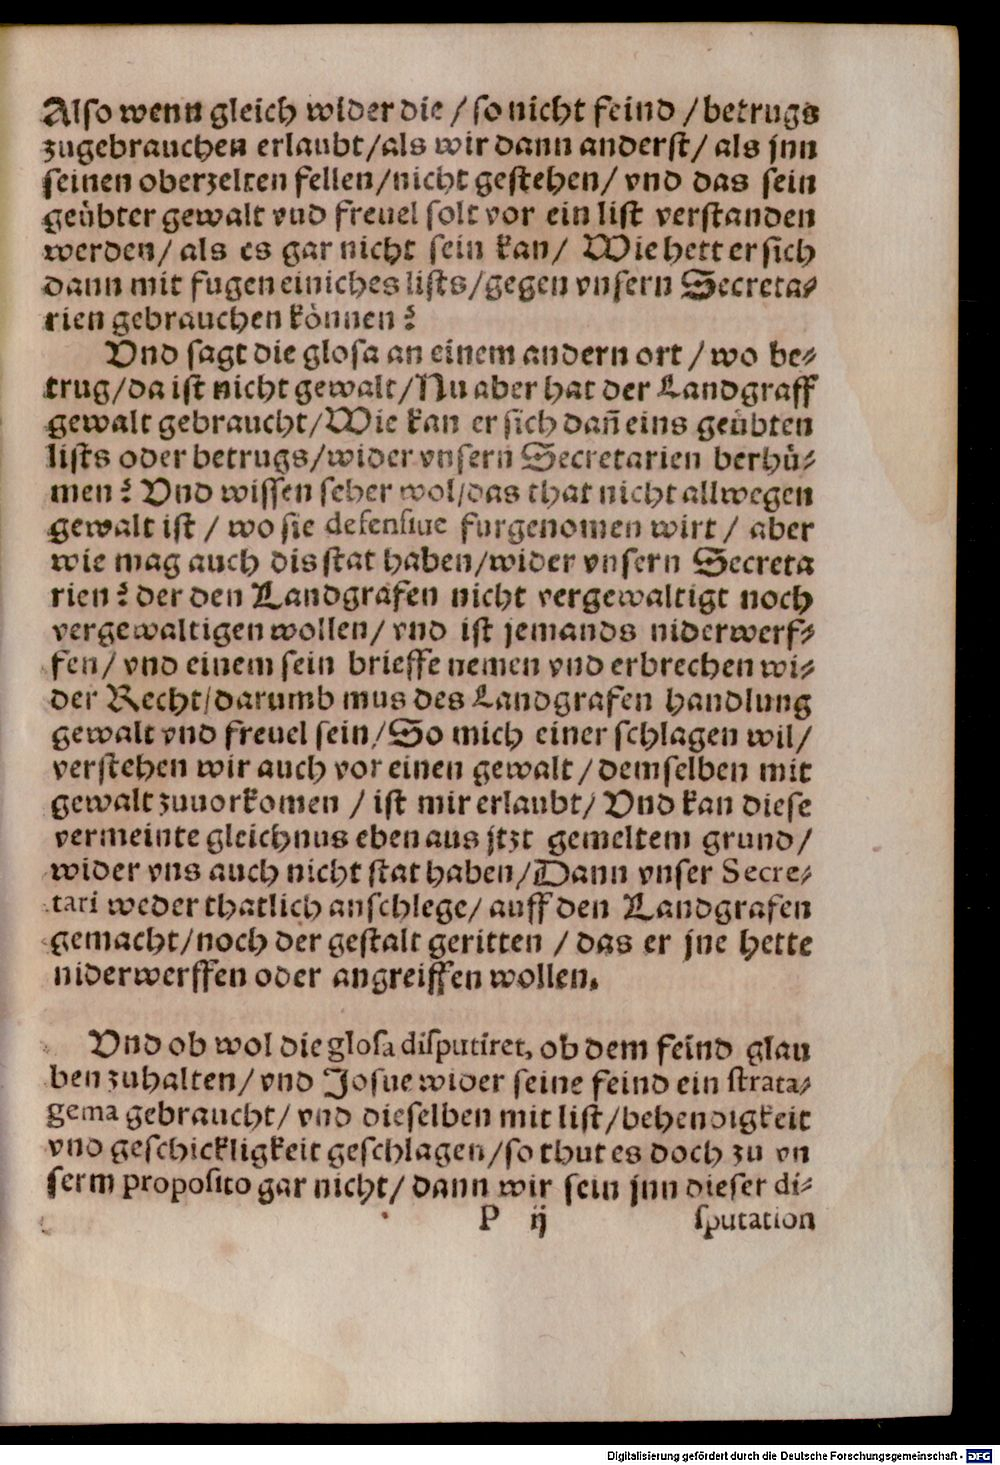 Also wenn gleich wider die / so nicht feind / betrugs
zugebrauchen erlaubt/als wir dann anderst/ als jnn
seinen oberzelten fellen/nicht gestehen/ vnd das sein
geübter gewalt vnd freuel solt vor ein list verstanden
werden/ als es gar nicht sein kan/ Wie hett er sich
dann mit fugen einiches lists/gegen vnsern Secreta⸗
rien gebrauchen können?
Vnd sagt die glosa an einem andern ort / wo be⸗
trug/da ist nicht gewalt/Nu aber hat der Landgraff
gewalt gebraucht/Wie kan er sich dañ eins geübten
lists oder betrugs/wider vnsern Secretarien berhü⸗
men? Vnd wissen seher wol/das that nicht allwegen
gewalt ist / wo sie defensiue furgenomen wirt / aber
wie mag auch dis stat haben/wider vnsern Secreta
rien? der den Landgrafen nicht vergewaltigt noch
vergewaltigen wollen/ vnd ist jemands niderwerf⸗
fen/ vnd einem sein brieffe nemen vnd erbrechen wi⸗
der Recht/darumb mus des Landgrafen handlung
gewalt vnd freuel sein/So mich einer schlagen wil/
verstehen wir auch vor einen gewalt / demselben mit
gewalt zuuorkomen / ist mir erlaubt/ Vnd kan diese
vermeinte gleichnus eben aus jtzt gemeltem grund/
wider vns auch nicht stat haben/Dann vnser Secre⸗
tari weder thatlich anschlege/ auff den Landgrafen
gemacht/noch der gestalt geritten / das er jne hette
niderwerffen oder angreiffen wollen.
Vnd ob wol die glosa disputiret, ob dem feind glau
ben zuhalten/ vnd Josue wider seine feind ein strata⸗
gema gebraucht/ vnd dieselben mit list/behendigkeit
vnd geschickligkeit geschlagen/so thut es doch zu vn
serm proposito gar nicht/ dann wir sein jnn dieser di⸗
P ij sputation
Digitalisierung gefördert durch die Deutsche Forschungsgemeinschaft - DFG